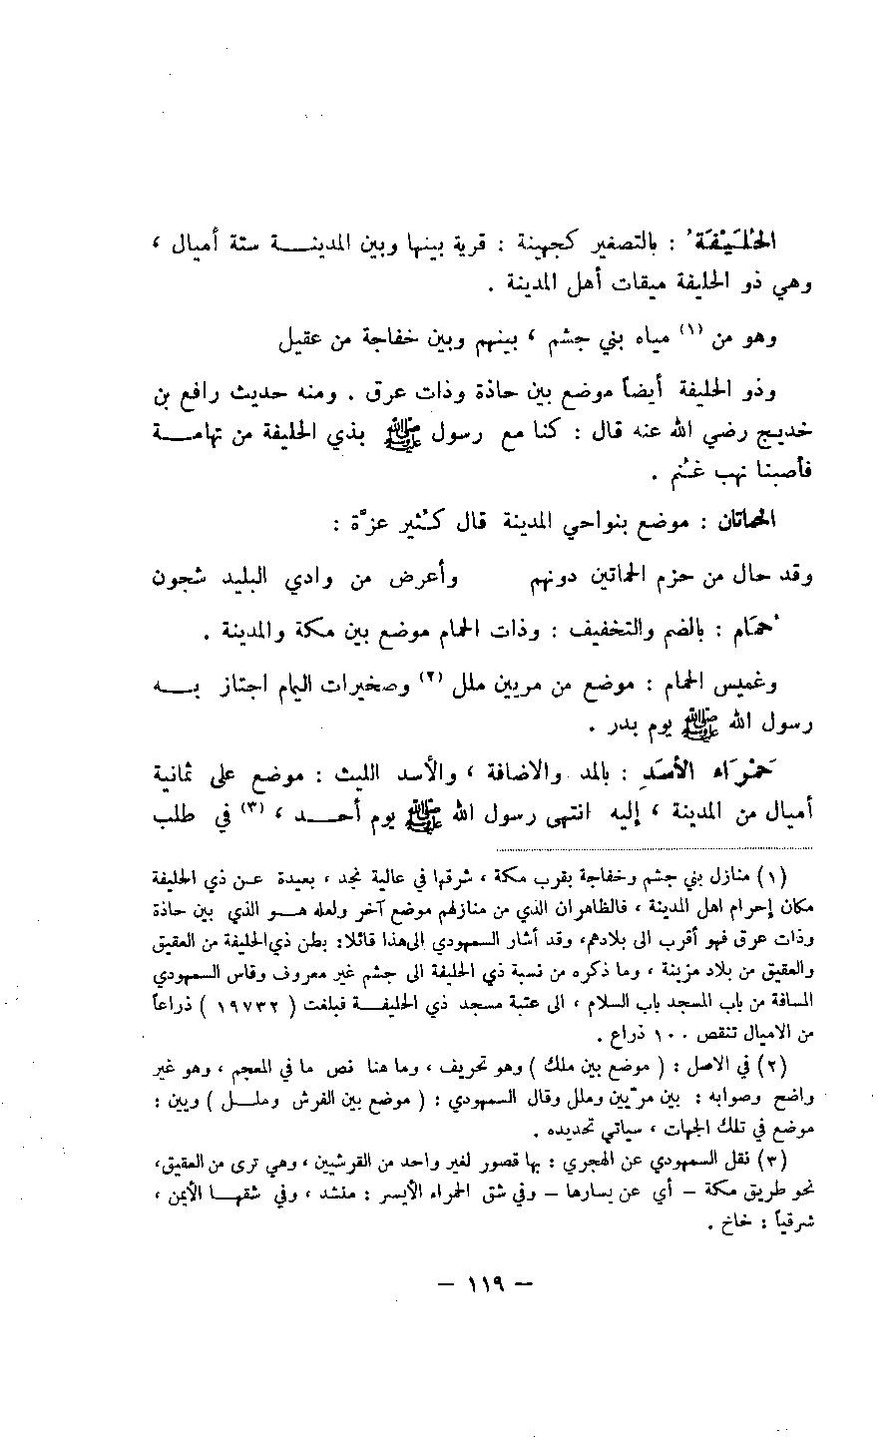 الحُلَيْفَة : بالتصغير كجهينة : قرية بينها وبين المدينـــة ستة أميال ،
وهي ذو الحليفة ميقات أهل المدينة .
وهو من (١) مياه بني جشم ، بينهم وبين خفاجة من عقيل
وذو الحليفة أيضاً موضع بين حاذة وذات عرق . ومنه حديث رافع بن
خديج رضي الله عنه قال : كنا مع رسول ﷺ بذي الحليفة من تهامـــة
فأصبنا نهب غنم .
الحماتان : موضع بنواحي المدينة قال كُثير عزَّة :
وقد حال من حزم الحماتين دونهم وأعرض من وادي البليد شجون
حُمَام : بالضم والتخفيف : وذات الحمام موضع بين مكة والمدينة .
وغميس الحمام : موضع من مريين ملل (٢) وصخيرات اليمام اجتاز بـــه
رسول الله ﷺ يوم بدر .
حَمْرَاء الأسَدِ : بالمد والاضافة ، والأسد الليث : موضع على ثمانية
أميال من المدينة ، إليه انتهى رسول الله ﷺ يوم أحـــد ، (٣) في طلب
(١) منازل بني جشم وخفاجة بقرب مكة ، شرقها في عالية نجد ، بعيدة عـن ذي الحليفة
مكان إحرام اهل المدينة ، فالظاهران الذي من منازلهم موضع آخر ولعله هـــو الذي بين حاذة
وذات عرق فهو أقرب الى بلادهم، وقد أشار السمهودي الى هذا قائلا: بطن ذي الحليفة من العقيق
والعقيق من بلاد مزينة ، وما ذكره من نسبة ذي الحليفة الى جشم غير معروف وقاس السمهودي
المسافة من باب المسجد باب السلام ، الى عتبة مسجد ذي الحليفـــة فبلغت ( ١٩٧٣٢ ) ذراعاً
من الاميال تنقص ١٠٠ ذراع .
(٢) في الاصل : ( موضع بين ملك ) وهو تحريف ، وما هنا نص ما في المعجم ، وهو غير
واضح وصوابه : بين مرّيين وملل وقال السمهودي : ( موضع بين الفرش وملـــل ) ويين :
موضع في تلك الجهات ، سيأتي تحديده .
(٣) نقل السمهودي عن الهجري : بها قصور لغير واحد من القرشيين ، وهي ترى من العقيق،
نحو طريق مكة – أي عن يسارها – وفي شق الحمراء الأيسر : منشد ، وفي شقهـــا الأيمن ،
شرقياً : خاخ .
– ١١٩ –